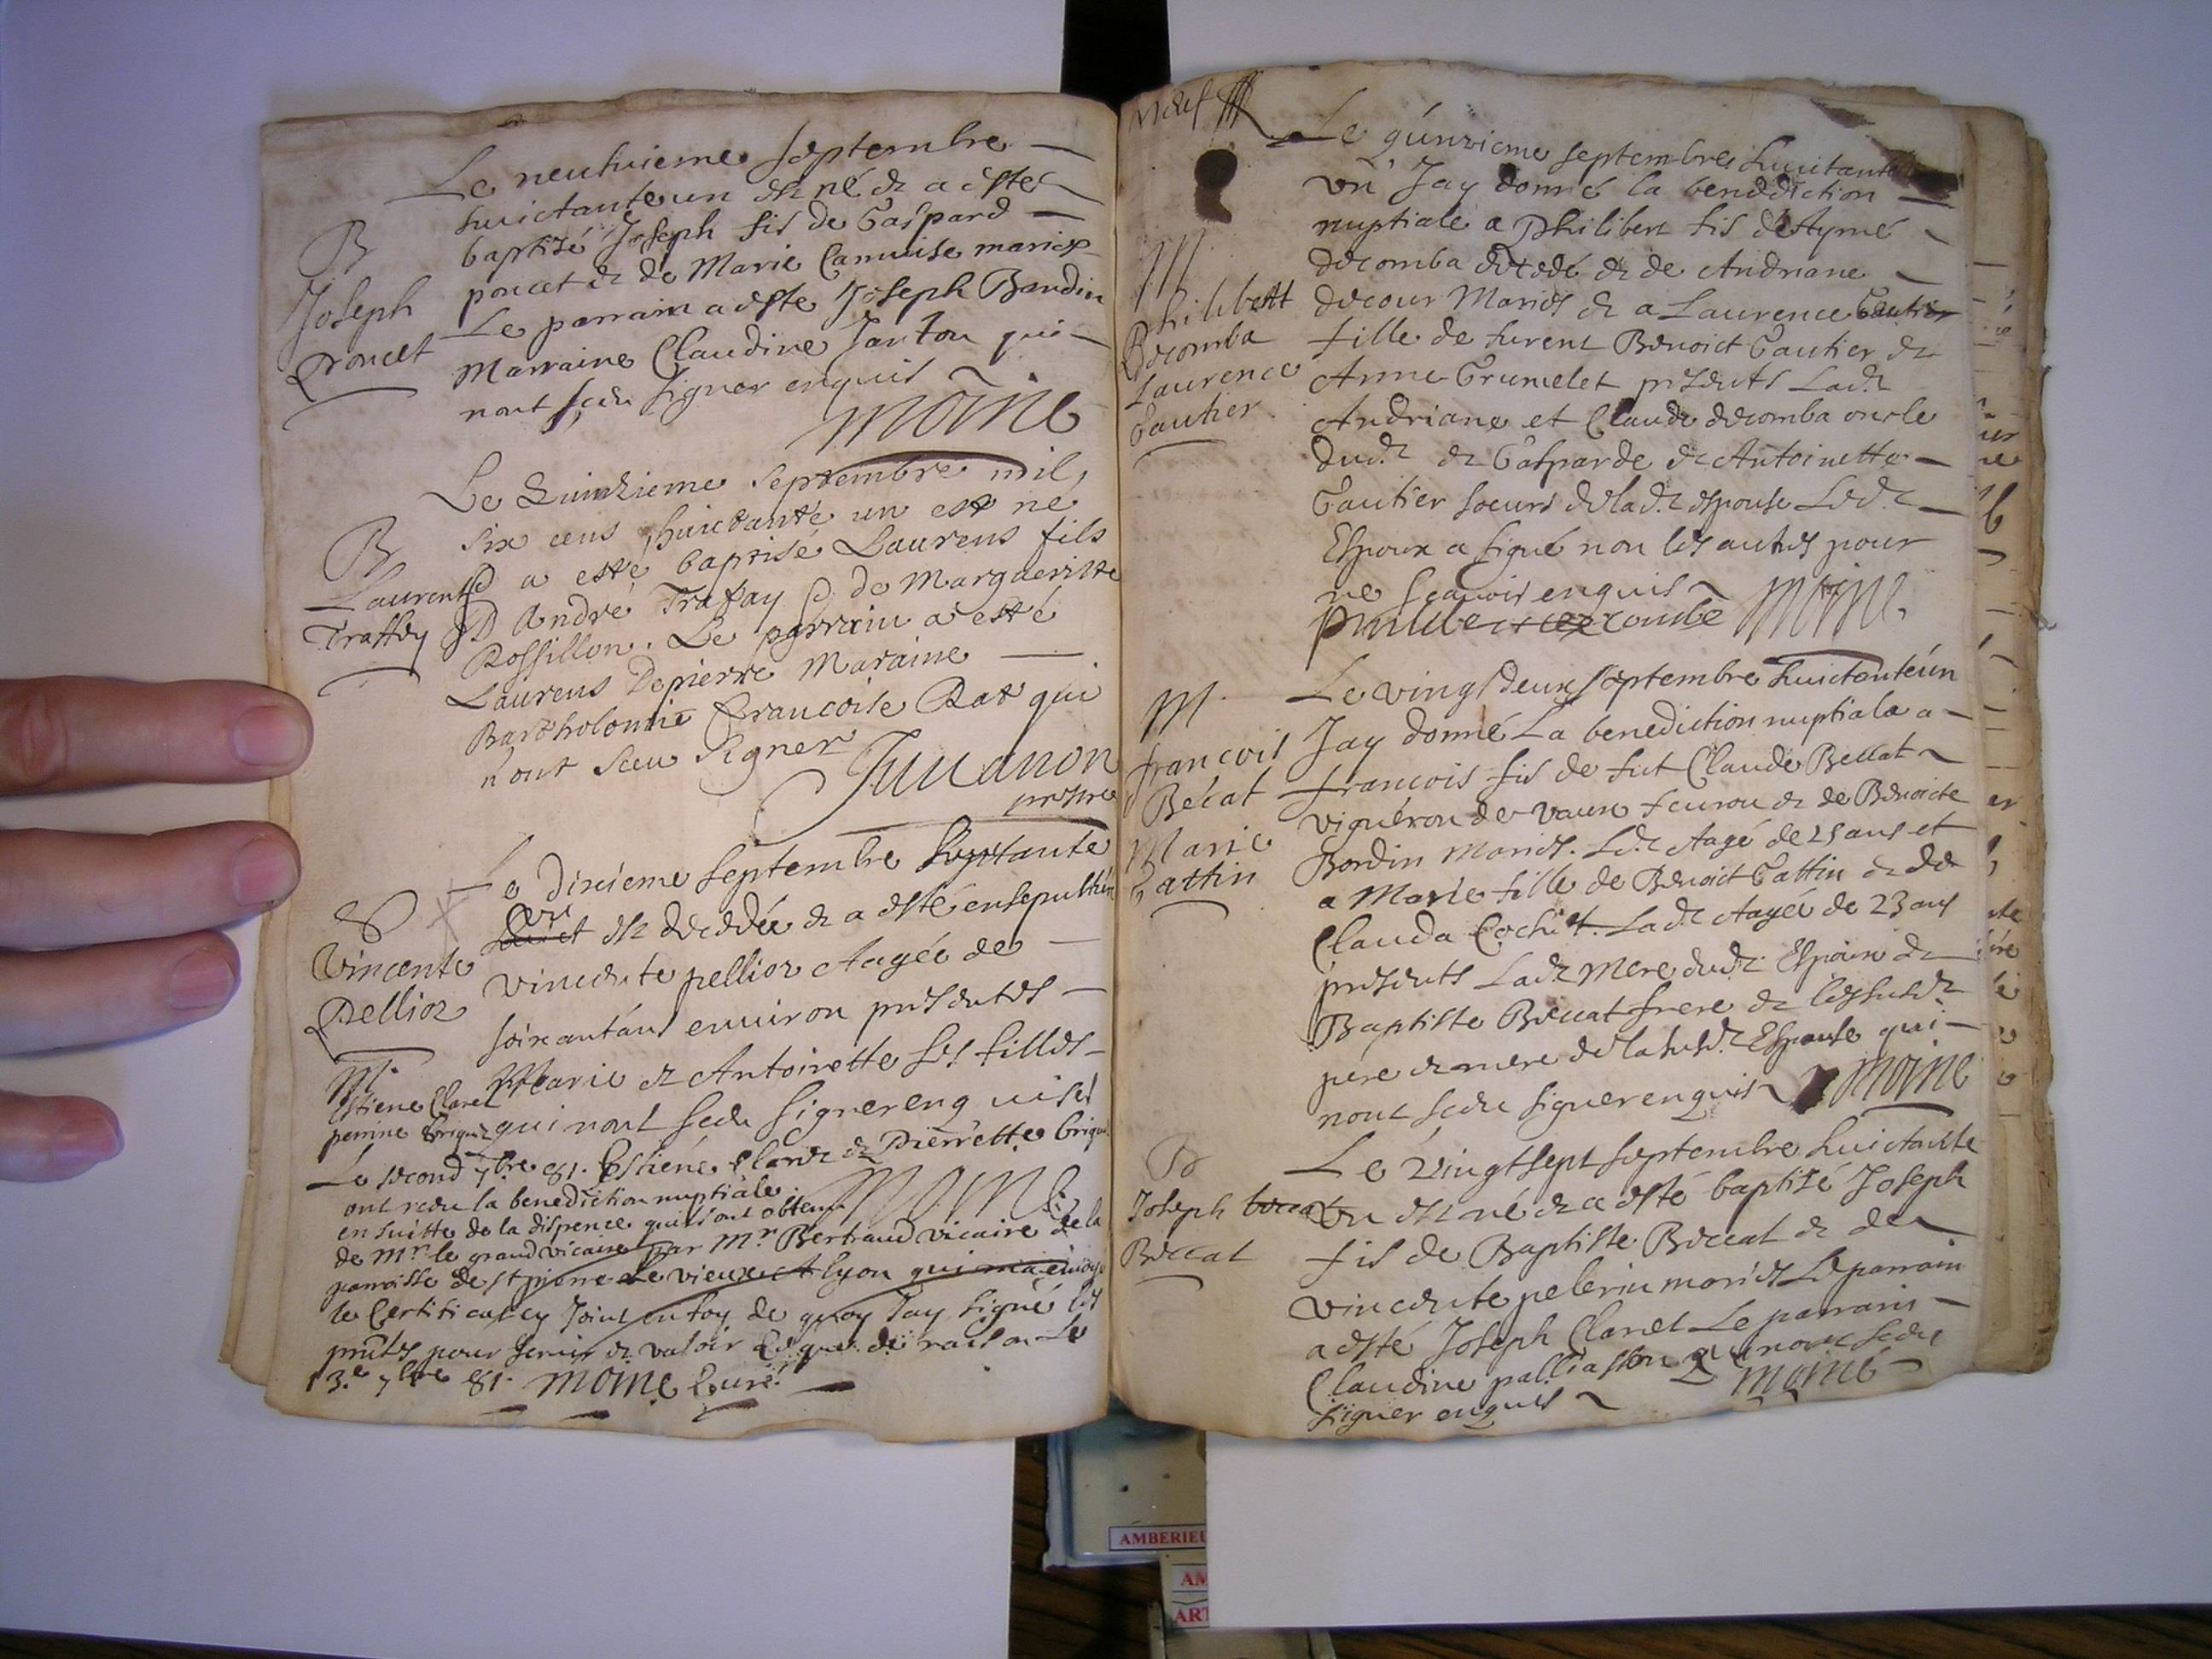 B
Joseph
Poncet
Le neufuieme septembre
huictante un est né et a esté
baptizé Joseph fis de Gaspard
poncet et de Marie Camuse mariez
Le parrain a esté Joseph Baudin
Marraine Claudine Janton qui
nont sceu signer enquis
Moine
B
Laurent
Traffey
Le Quinzieme septembre mil
six cens huictante un est ne
et a esté baptisé Laurens fils
D André Trafay et de Margueritte
Rossillon. Le parrain a esté
Laurens Depierre Maraine
Bartholomie Francoise Rat qui
n'ont sceu signer
prestre
S
Vincente
Pellior
Le Dixieme septembre
un est decedée et a esté ensepultur
vincente pellior Aagée de
soixantans enuiron presentes
Marie et Antoinette ses filles
qui nont sceu signer enquises
Moine
M.
Estiene Claret
perrine brique
Le second 7bre 81. Estiene Claret et Pierrette briqu
ont receu la benediction nuptiale
en suitte de la dispence quils ont obtenu
de Mr le grand vicaire par Mr Bertrand vicaire de la
parroisse de st pierre Le vieux A lyon qui ma enuoyé
le Certificat cy Joint en foy de quoy Jay signé les
pntes pour seruir et valoir Ce que de raison Le
13.e 7bre 81. Moine Curé
neuf
M
Philibert
Decomba
Laurence
Gautier
Le quinzieme septembre huictante
un Jay donné la benediction
nuptiale a Philibert fis de Aymé
decomba decedé et de Andriane
decour Mariés et a Laurence Gautier
fille de furent Benoict Gautier et
Anne Grumelet presents Lad.e
Andriane et Claude decomba oncle
dud.t et Gasparde et Antoinette
Gautier soeurs de lad.e espouse Led.t
Espoux a signé non les autres pour
ne scauoir enquis
Moine
M.
francois
Becat
Marie
Gattin
Le vingtdeux septembre huictanteun
Jay donné La benediction nuptiale a
francois fis de fut Claude Beccat
vigneron de vaux feurou et de Benoicte
Bordin Mariés. Led.t Aagé de 25 ans et
a Marie fille de Benoict Gattin et de
Clauda Cochet. Lad.e Aagée de 23 ans
presents Lad.e Mere dud.t Espoux et
Baptiste Beccat frere et les susd.ts
pere et mere de la susd.e Espouse qui
nont sceu signer enquis Moine
B
Joseph
Beccat
Le vingtsept septembre huictante
un est né et a esté baptizé Joseph
fis de Baptiste Beccat et de
vincente pelerin mariés Le parrain
a esté Joseph Claret Le parrain
Claudine palliasson qui nont sceu
signer enquis Moine
AMBERIEU
AM
ART